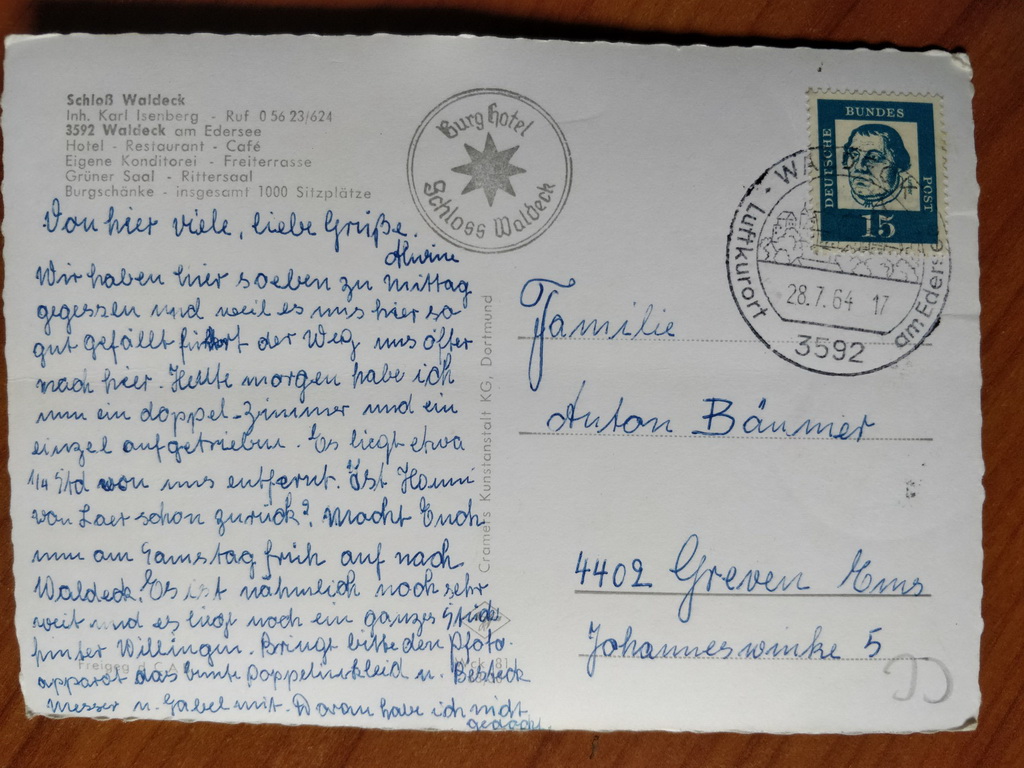 Schloß Waldeck
Inh. Karl Isenberg - Ruf 0 56 23/624
3592 Waldeck am Edersee
Hotel - Restaurant - Café
Eigene Konditorei - Freiterrasse
Grüner Saal - Rittersaal
Burgschänke - insgesamt 1000 Sitzplätze
Burg Hotel
Schloss Waldeck
DEUTSCHE BUNDES POST
15
Luftkurort
am Edersee
28.7.64 17
3592
Von hier viele, liebe Grüße.
Wir haben hier soeben zu Mittag
gegessen und weil es uns hier so
gut gefällt führt der Weg uns öfter
nach hier. Heute morgen habe ich
nun ein doppel-Zimmer und ein
einzel aufgetrieben. Es liegt etwa
1/4 Std von uns entfernt. Ist Hanni
von Laer schon zurück? Macht Euch
nun am Samstag früh auf nach
Waldeck. Es ist nähmlich noch sehr
weit und es liegt noch ein ganzes Stück
hinter Willingen. Bringt bitte den Photo-
apparat das bunte u. Besteck
Messer u. Gabel mit. Daran habe ich nicht
gedacht.
Cramers Kunstanstalt KG, Dortmund
Familie
Anton Bäumer
4402 Greven Ems
Johanneswinke 5